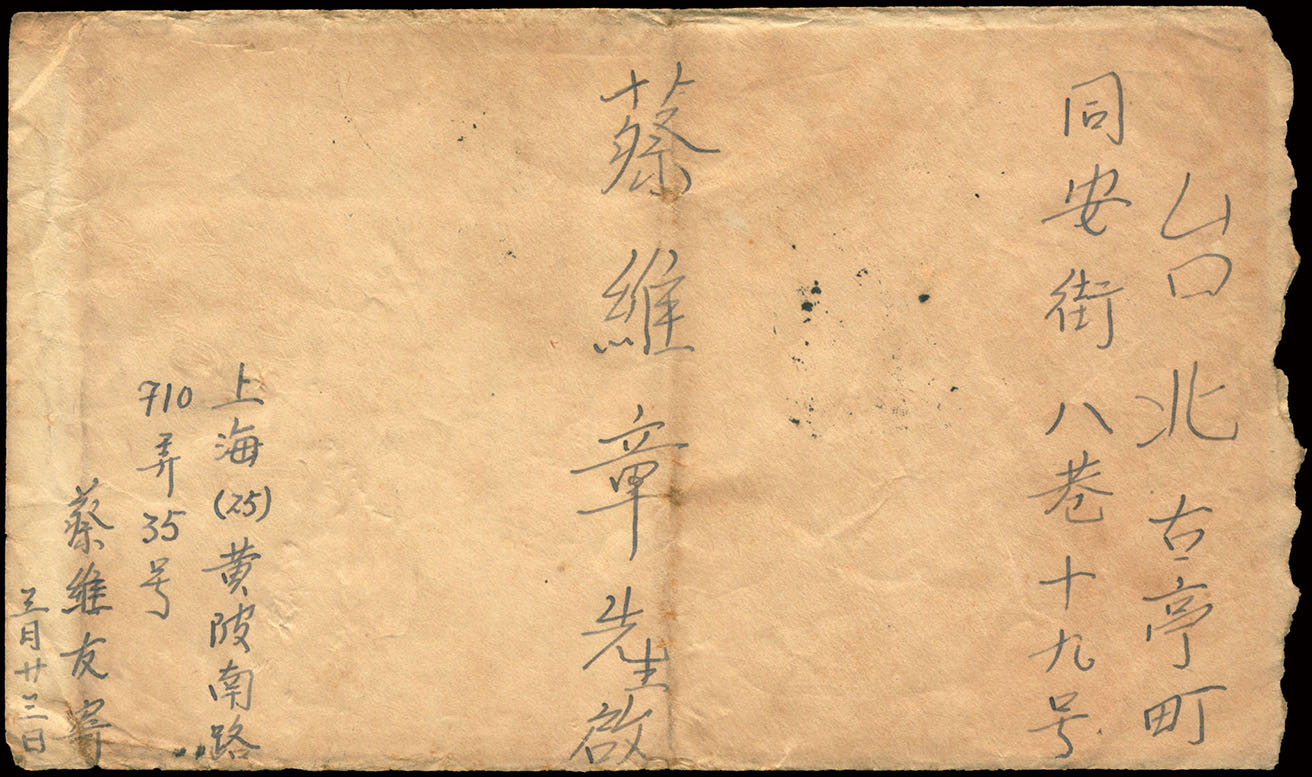 台北古亭町
同安街八巷十九号
蔡維章先生啟
上海(25)黄陂南路
710弄35号
蔡維友寄
三月廿三日